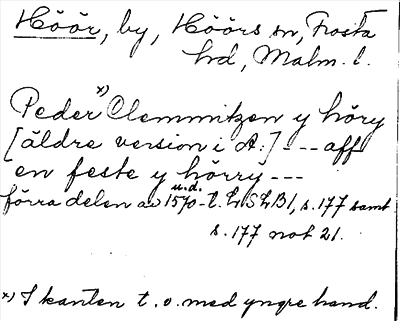 Höör, by, Höörs sn, Frosta
hd, Malm. l.
Peder x) Clemmitzen y höry
[äldre version i A:] --- aff
en feste y hörry ---
u.d.
förra delen av 1570-t. LSLB1, s. 177 samt
s. 177 not 21.
x) I kanten t. o. med yngre hand.